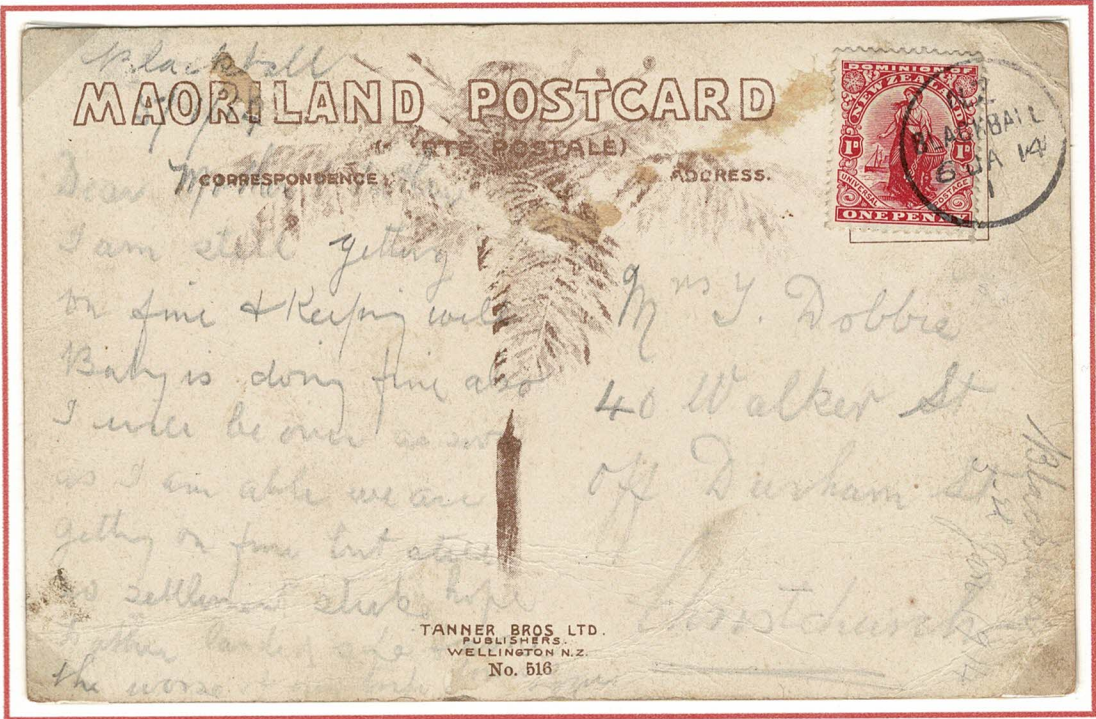 Blackball
MAORILAND POSTCARD
POSTALE)
CORRESPONDENCE.
ADDRESS.
DOMINION OF
NEW ZEALAND
1D 1D
UNIVERSAL POSTAGE
ONE PENNY
N.Z
BLACKBALL
6 JA 14
1
Dear Mother
I am still getting
on fine & Keeping well
Baby is doing fine also
I will be over as soon
as I am able we are
getting on fine but still
no settlement strike hope
Father
the worse
Mrs T. Dobbie
40 Walker St
Off Durham St
Christchurch
TANNER BROS LTD.
PUBLISHERS.
WELLINGTON N.Z.
No. 516